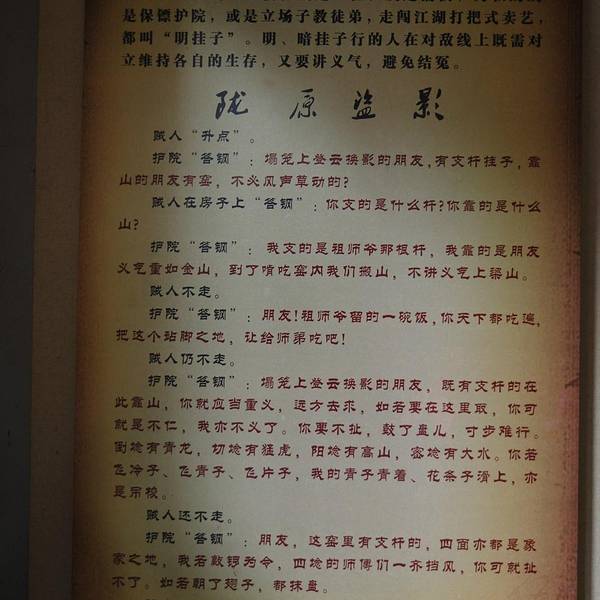 是保镖护院，或是立场子教徒弟，走闯江湖打把式卖艺，
都叫“明挂子”。明、暗挂子行的人在对敌线上既需对
立维持各自的生存，又要讲义气，避免结冤。
陇原盗影
贼人“升点”。
护院“答钢”：塌笼上登云换影的朋友，有支杆挂子，靠
山的朋友有窑，不必风声草动的？
贼人在房子上“答钢”：你支的是什么杆？你靠的是什么
山？
护院“答钢”：我支的是祖师爷那根杆，我靠的是朋友
义气重如金山，到了啃吃窑内我们搬山，不讲义气上梁山。
贼人不走。
护院“答钢”：朋友！祖师爷留的一碗饭，你天下都吃遍，
把这个站脚之地，让给师弟吃吧！
贼人仍不走。
护院“答钢”：塌笼上登云换影的朋友，既有支杆的在
此靠山，你就应当重义，远方去求，如若要在这里取，你可
就是不仁，我亦不义了。你要不扯，鼓了盘儿，寸步难行。
倒埝有青龙，切埝有猛虎，阳埝有高山，密埝有大水。你若
飞冷子、飞青子、飞片子，我的青子青着、花条子滑上，亦
是吊梭。
贼人还不走。
护院“答钢”：朋友，这窑里有支杆的，四面亦都是象
家之地，我若敲锣为令，四埝的师傅们一齐挡风，你可就扯
不了。如若朝了翅子，都抹盘。